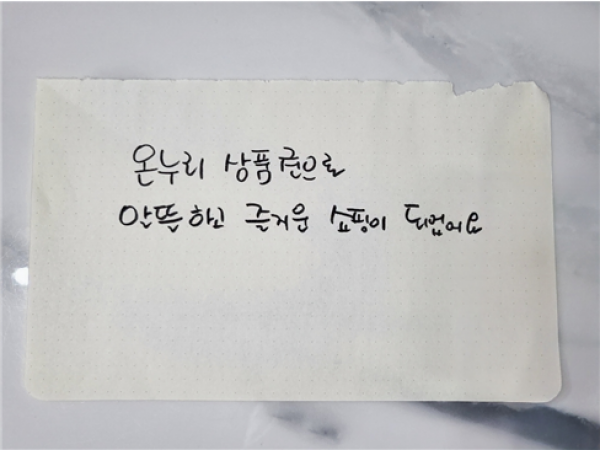 온누리 상품권으로
알뜰하고 즐거운 쇼핑이 되었어요